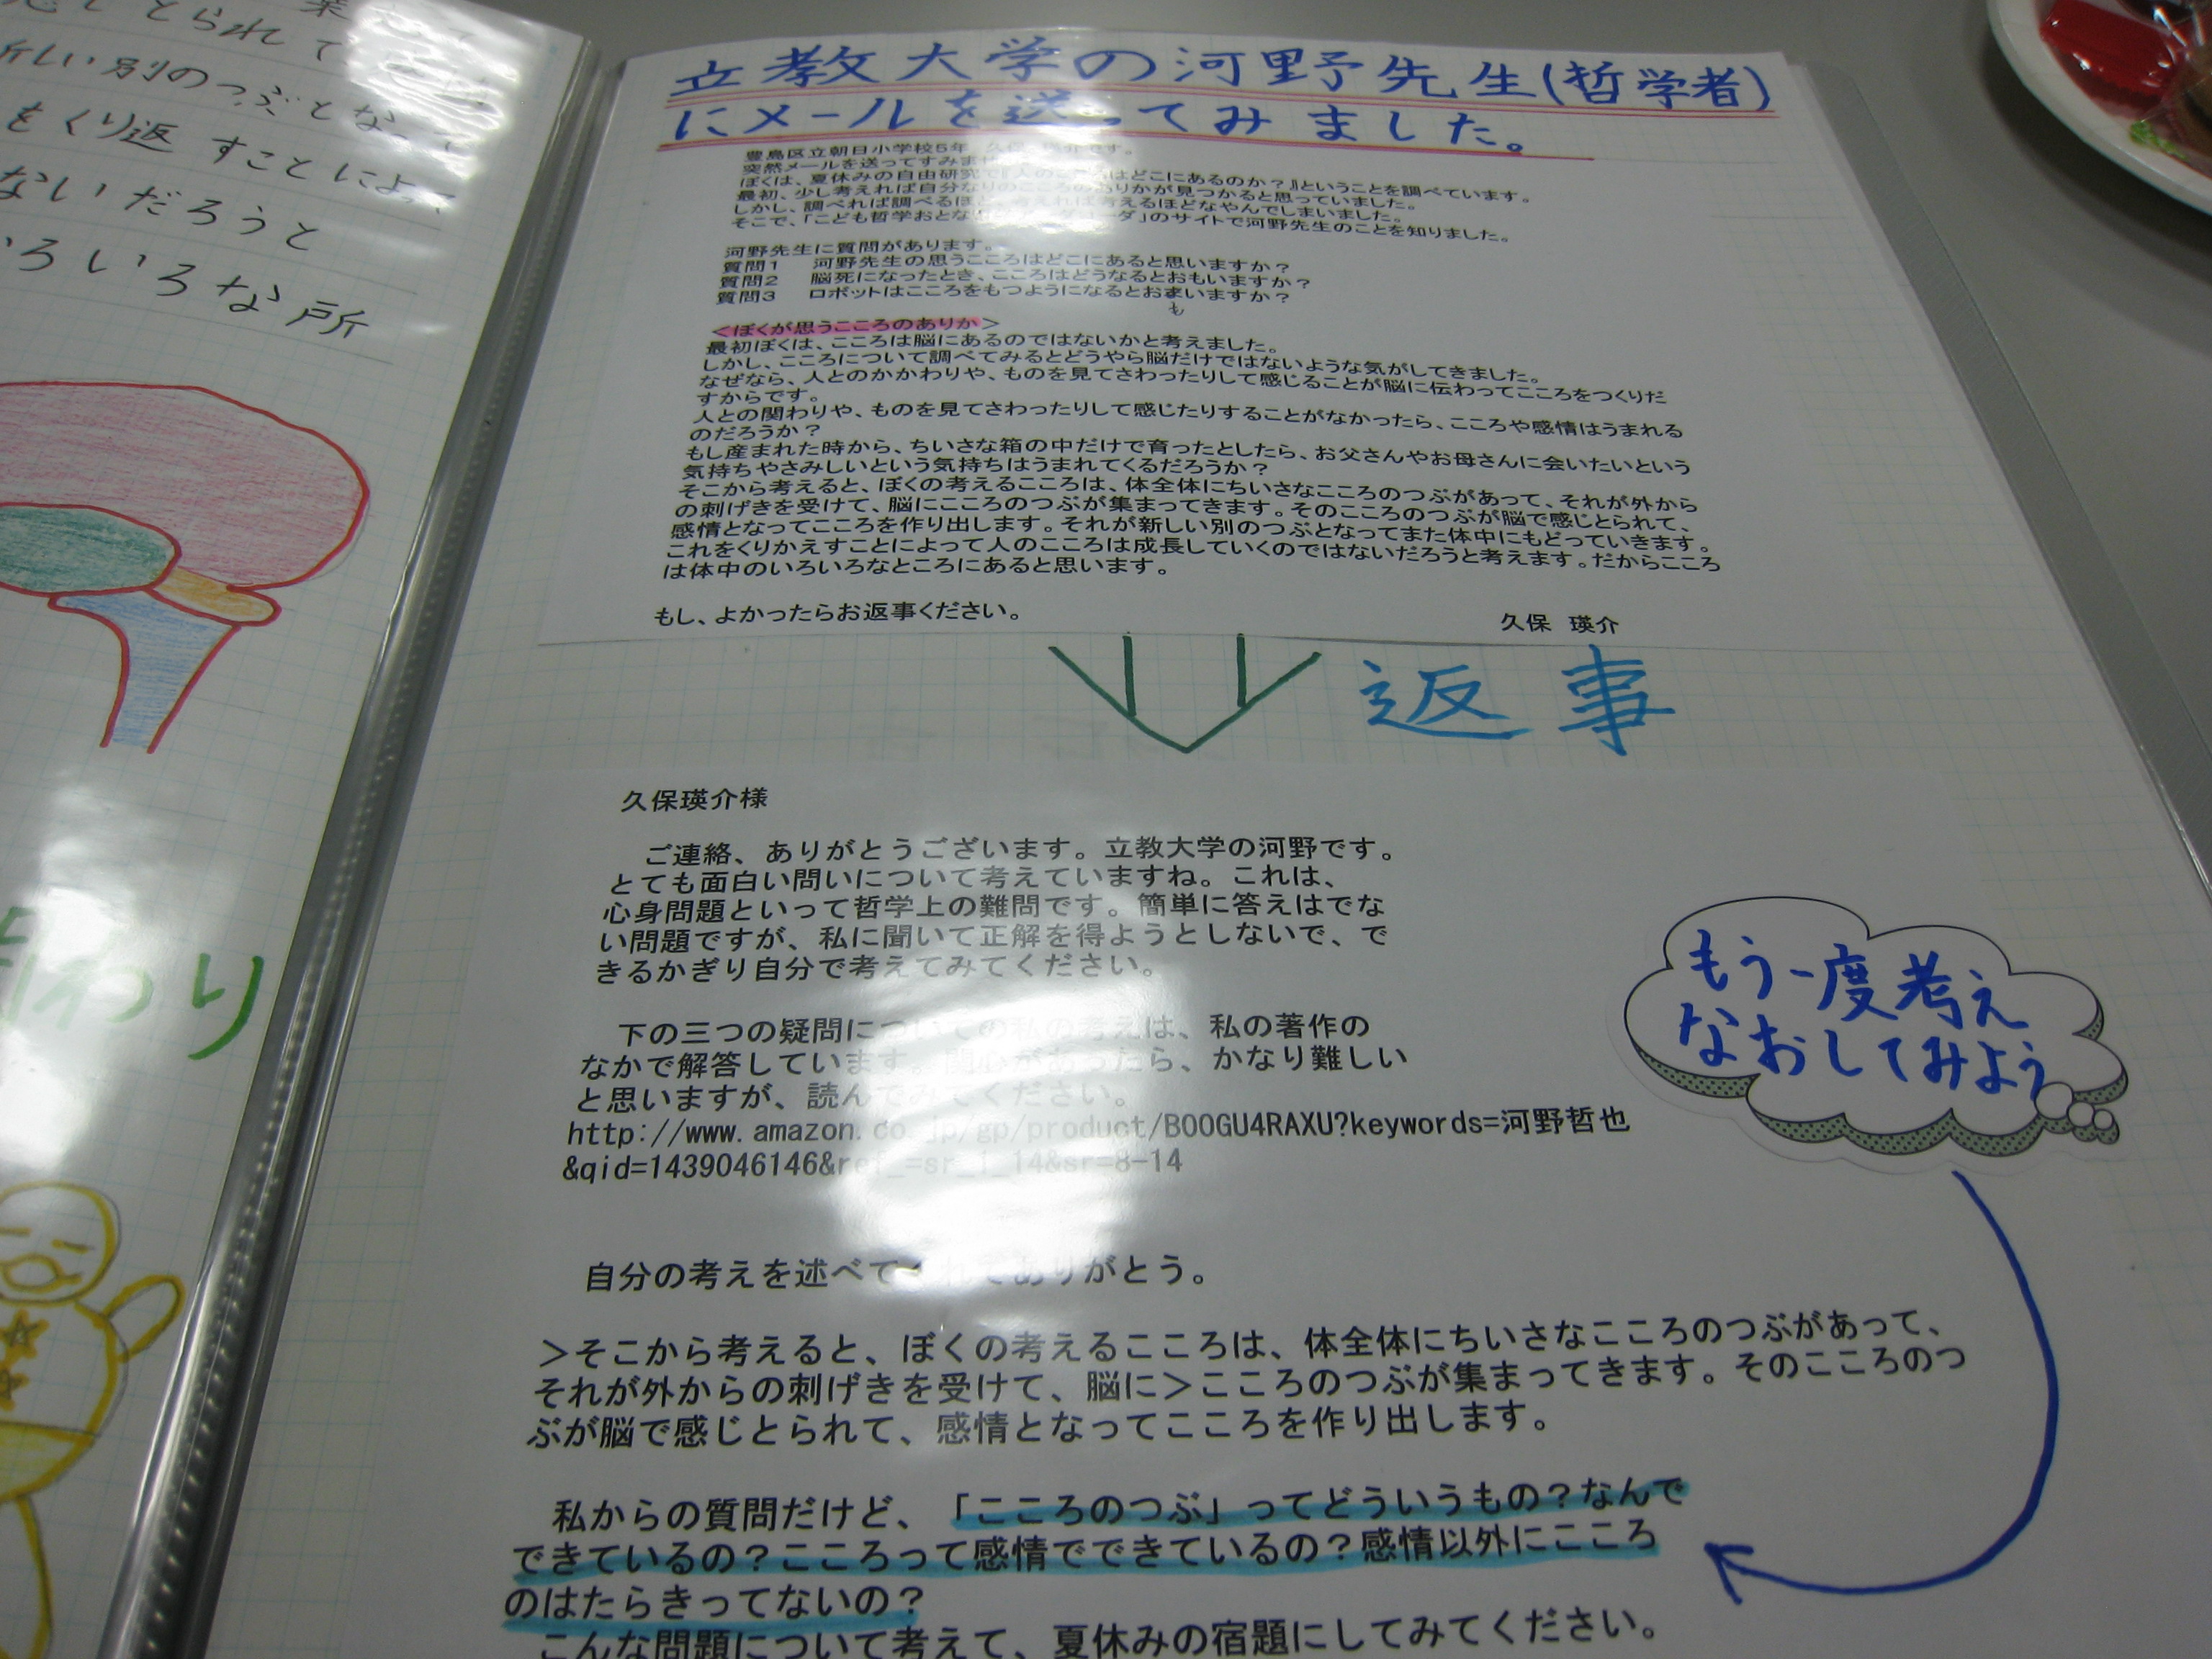 とられて
新しい別のつぶとなって
もくり返すことによって
ないだろうと
いろいろな所
わり
立教大学の河野先生(哲学者)
にメールを送ってみました。
豊島区立朝日小学校5年 久保 瑛介です。
突然メールを送ってすみま
ぼくは、夏休みの自由研究で『人のこころはどこにあるのか?』ということを調べています。
最初、少し考えれば自分なりのこころのありかが見つかると思っていました。
しかし、調べれば調べるほど、考えれば考えるほどなやんでしまいました。
そこで、「こども哲学おとな ーダ」のサイトで河野先生のことを知りました。
河野先生に質問があります。
質問1 河野先生の思うこころはどこにあると思いますか?
質問2 脳死になったとき、こころはどうなるとおもいますか?
質問3 ロボットはこころをもつようになるとおまいますか?
も
<ぼくが思うこころのありか>
最初ぼくは、こころは脳にあるのではないかと考えました。
しかし、こころについて調べてみるとどうやら脳だけではないような気がしてきました。
なぜなら、人とのかかわりや、ものを見てさわったりして感じることが脳に伝わってこころをつくりだ
すからです。
人との関わりや、ものを見てさわったりして感じたりすることがなかったら、こころや感情はうまれる
のだろうか?
もし産まれた時から、ちいさな箱の中だけで育ったとしたら、お父さんやお母さんに会いたいという
気持ちやさみしいという気持ちはうまれてくるだろうか?
そこから考えると、ぼくの考えるこころは、体全体にちいさなこころのつぶがあって、それが外から
の刺げきを受けて、脳にこころのつぶが集まってきます。そのこころのつぶが脳で感じとられて、
感情となってこころを作り出します。それが新しい別のつぶとなってまた体中にもどっていきます。
これをくりかえすことによって人のこころは成長していくのではないだろうと考えます。だからこころ
は体中のいろいろなところにあると思います。
もし、よかったらお返事ください。
久保 瑛介
返事
久保瑛介様
ご連絡、ありがとうございます。立教大学の河野です。
とても面白い問いについて考えていますね。これは、
心身問題といって哲学上の難問です。簡単に答えはでな
い問題ですが、私に聞いて正解を得ようとしないで、で
きるかぎり自分で考えてみてください。
下の三つの疑問についての私の考えは、私の著作の
なかで解答しています。関心があったら、かなり難しい
と思いますが、読んでみてください。
http://www.amazon.co.jp/gp/product/B00GU4RAXU?keywords=河野哲也
&qid=1439046146&ref_=sr_1_14&sr=8-14
自分の考えを述べてくれてありがとう。
>そこから考えると、ぼくの考えるこころは、体全体にちいさなこころのつぶがあって、
それが外からの刺げきを受けて、脳に>こころのつぶが集まってきます。そのこころのつ
ぶが脳で感じとられて、感情となってこころを作り出します。
私からの質問だけど、「こころのつぶ」ってどういうもの?なんで
できているの?こころって感情でできているの?感情以外にこころ
のはたらきってないの?
こんな問題について考えて、夏休みの宿題にしてみてください。
もう一度考え
なおしてみよう